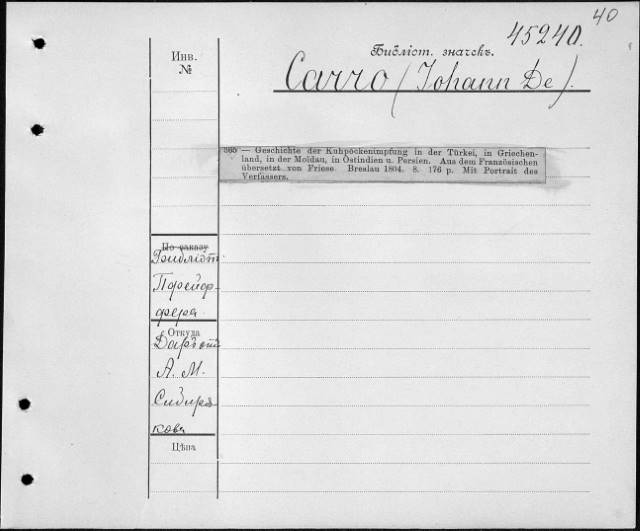 40
45240.
Библіот. значекъ.
Carro (Johann De).
Инв.
№
565 — Geschichte der Kuhpöckenimpfung in der Türkei, in Griechen-
land, in der Moldau, in Ostindien u. Persien. Aus dem Französischen
übersetzt von Friese. Breslau 1804. 8. 176 p. Mit Portrait des
Verfassers.
По заказу
Библіот.
Порейор-
фера
Откуда
Даръ отъ
А. М.
Сибиря
кова
Цѣна